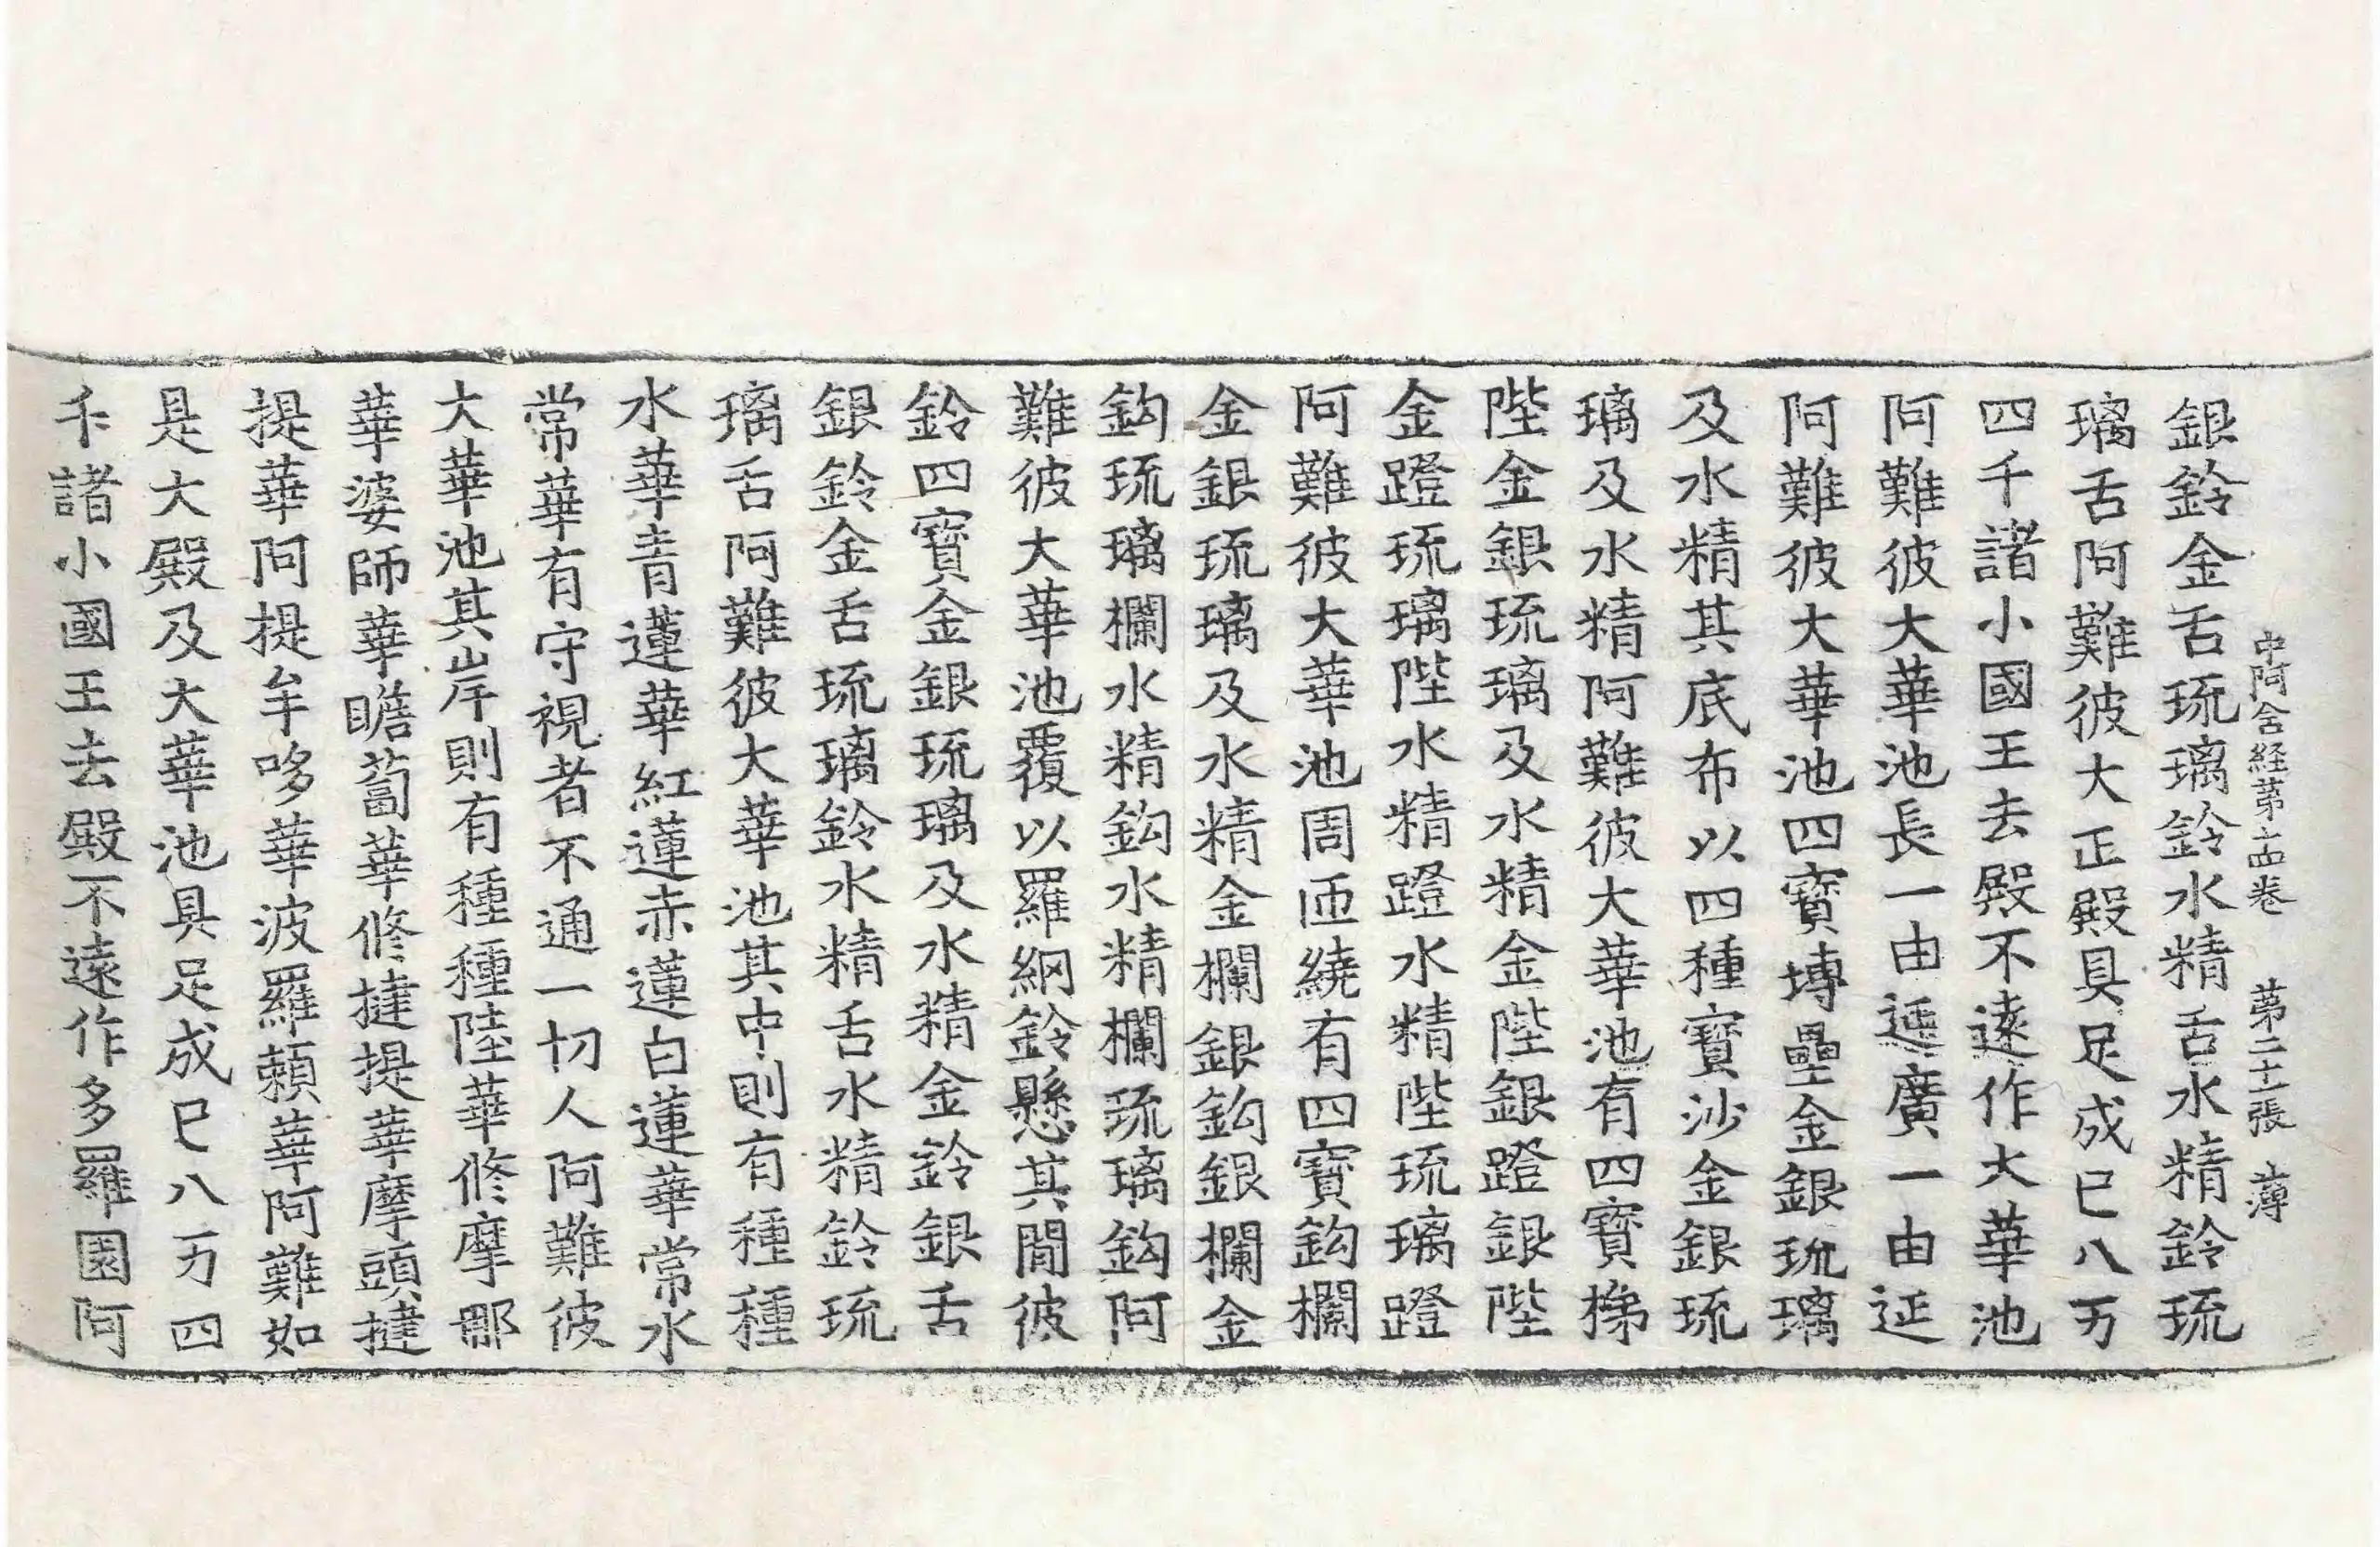 中阿含経苐十四卷　苐二十張　薄
銀鈴金舌琉璃鈴水精舌水精鈴琉
璃舌阿難彼大正殿具足成已八万
四千諸小國王去殿不遠作大華池
阿難彼大華池長一由延廣一由延
阿難彼大華池四寶塼壘金銀琉璃
及水精其底布以四種寶沙金銀琉
璃及水精阿難彼大華池有四寶梯
陛金銀琉璃及水精金陛銀蹬銀陛
金蹬琉璃陛水精蹬水精陛琉璃蹬
阿難彼大華池周匝繞有四寶鈎欄
金銀琉璃及水精金欄銀鈎銀欄金
鈎琉璃欄水精鈎水精欄琉璃鈎阿
難彼大華池覆以羅網鈴懸其間彼
鈴四寶金銀琉璃及水精金鈴銀舌
銀鈴金舌琉璃鈴水精舌水精鈴琉
璃舌阿難彼大華池其中則有種種
水華青蓮華紅蓮赤蓮白蓮華常水
常華有守視者不通一切人阿難彼
大華池其岸則有種種陸華修摩那
華婆師華瞻蔔華修揵提華摩頭揵
提華阿提牟哆華波羅頼華阿難如
是大殿及大華池具足成已八万四
千諸小國王去殿不遠作多羅園阿